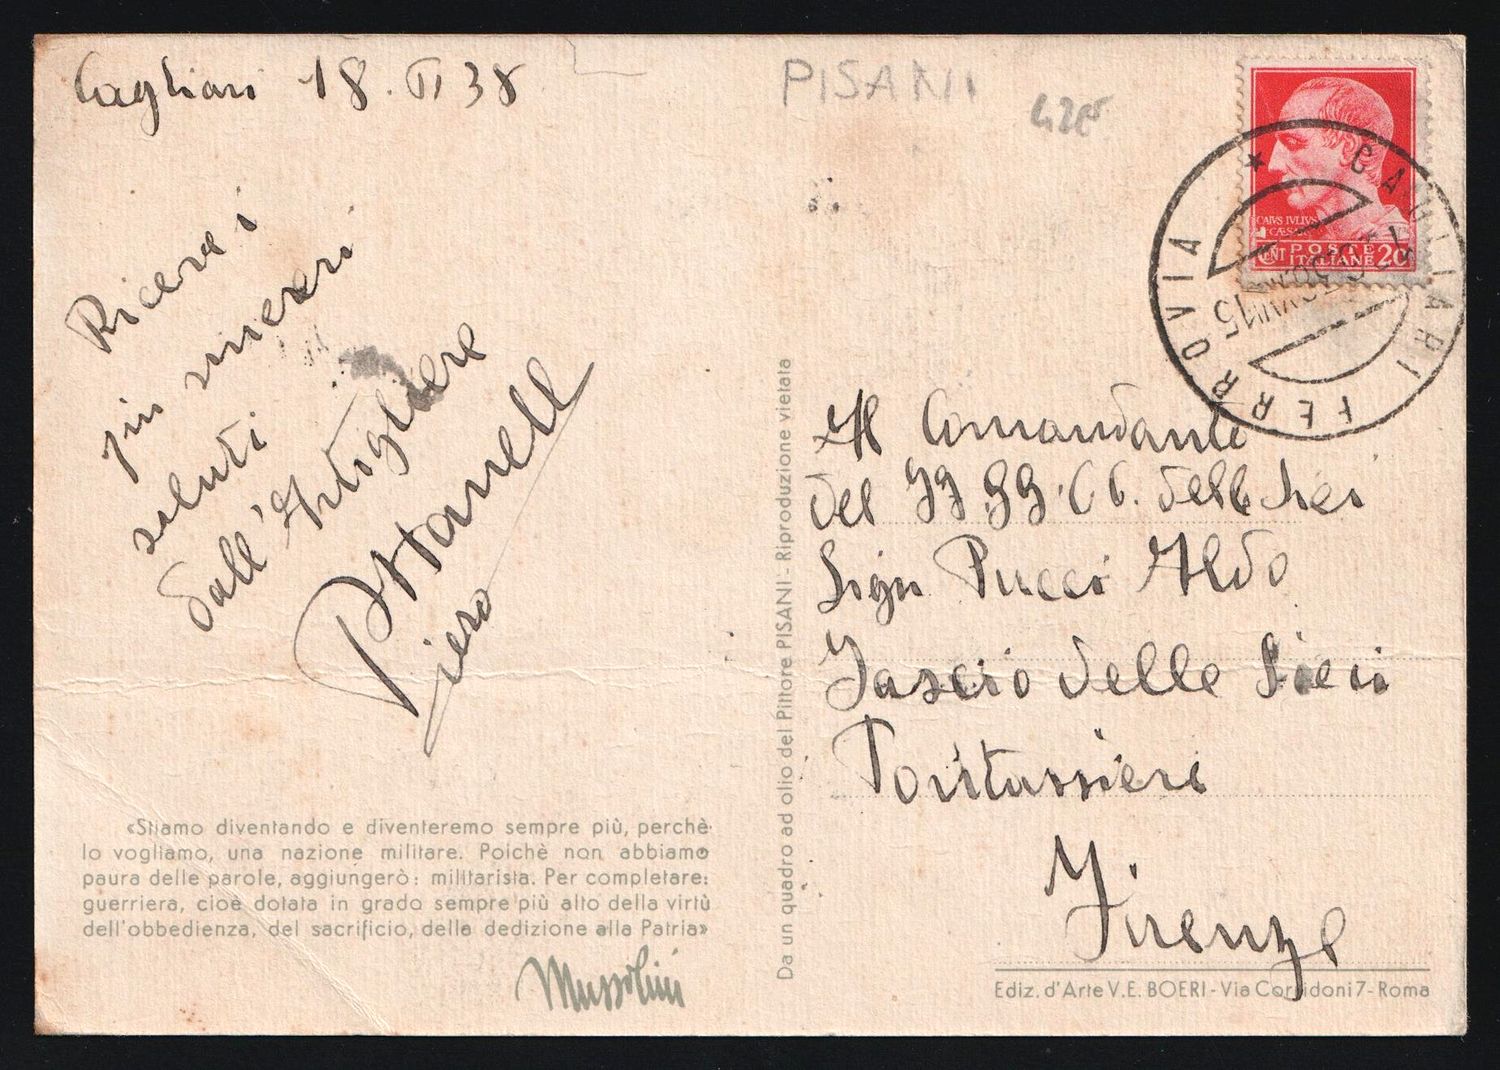 Cagliari 18. II 38
PISANI
CAGLIARI FERROVIA
CAIVS IVLIVS
CÆSAR
CENT POSTE ITALIANE 20
Ricevi i
più sinceri
saluti
dall'Artigliere
Piero
Al Comandante
del GG.GG.CC. delle Sieci
Sign Pucci Aldo
Fascio delle Sieci
Pontassieve
Firenze
Da un quadro ad olio del Pittore PISANI - Riproduzione vietata
«Stiamo diventando e diventeremo sempre più, perchè
lo vogliamo, una nazione militare. Poichè non abbiamo
paura delle parole, aggiungerò: militarista. Per completare:
guerriera, cioè dotata in grado sempre più alto della virtù
dell'obbedienza, del sacrificio, della dedizione alla Patria»
Mussolini
Ediz. d'Arte V.E. BOERI - Via Corridoni 7 - Roma